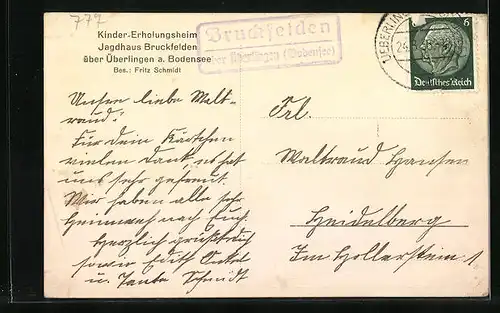 777
Kinder-Erholungsheim
Jagdhaus Bruckfelden
über Überlingen a. Bodensee
Bes.: Fritz Schmidt
Bruckfelden
über Überlingen (Bodensee)
ÜBERLINGEN
24.
6
Deutsches Reich
Unsere liebe Walt-
raud!
Für Dein Kärtchen
vielen Dank, es hat
uns sehr gefreut.
Wir haben alle sehr
Heimweh nach Euch.
Herzlich grüßt Dich
sowie Edith Onkel
u. Tante Schmidt
Frl.
Waltraud Hansen
Heidelberg
Im Hollerstein 1